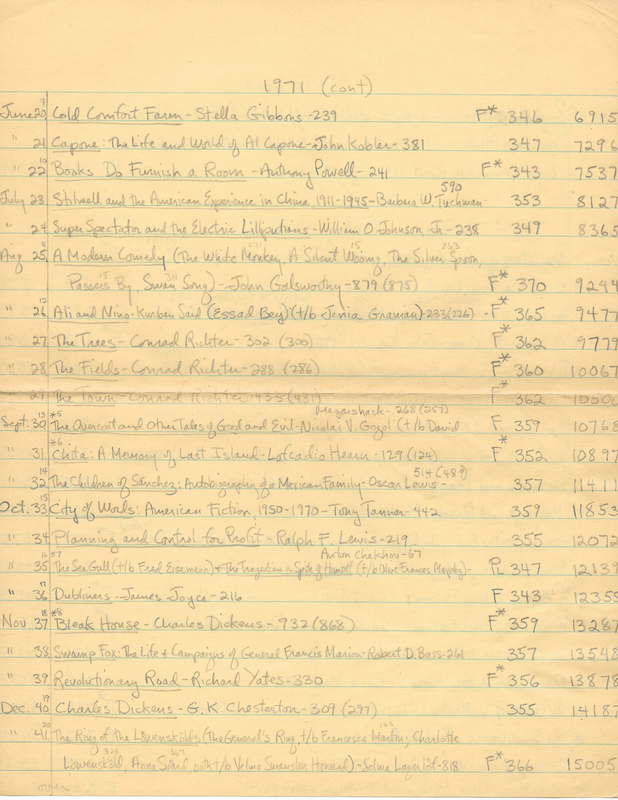 1971 (cont)
June 20 Cold Comfort Farm - Stella Gibbons - 239 F* 346 6915
" 21 Capone: The Life and World of Al Capone - John Kobler - 381 347 7296
10
" 22 Books Do Furnish a Room - Anthony Powell - 241 F* 343 7537
590
July 23 Stilwell and the American Experience in China, 1911-1945 - Barbara W. Tuchman - 353 8127
" 24 Super Spectator and the Electric Lilliputians - William O. Johnson, Jr. - 238 349 8365
Aug 25 A Modern Comedy (The White Monkey, A Silent Wooing, The Silver Spoon,
Passers By, Swan Song) - John Galsworthy - 879 (875) F* 370 9244
12
" 26 Ali and Nino - Kurban Said (Essad Bey) (t/b Jenia Graman) - 233 (226) - F* 365 9477
" 27 The Trees - Conrad Richter - 302 (300) F* 362 9779
" 28 The Fields - Conrad Richter - 288 (286) F* 360 10067
" 29 The Town - Conrad Richter - 433 (431) F* 362 10500
Magarshack - 268 (257)
Sept. 30 *5 The Overcoat and Other Tales of Good and Evil - Nicolai V. Gogol (t/b David F 359 10768
*6
" 31 Chita: A Memory of Last Island - Lafcadio Hearn - 129 (124) F* 352 10897
14 514 (489)
" 32 The Children of Sánchez: Autobiography of a Mexican Family - Oscar Lewis - 357 11411
15
Oct. 33 City of Words: American Fiction, 1950-1970 - Tony Tanner - 442 359 11853
" 34 Planning and Control for Profit - Ralph F. Lewis - 219 355 12072
Anton Chekhov - 67
" 35 The Sea Gull (t/b Fred Eisemann) & The Tragedian in Spite of Himself (t/b Olive Frances Murphy) - PL 347 12139
17
" 36 Dubliners - James Joyce - 216 F 343 12355
18 *8
Nov. 37 Bleak House - Charles Dickens - 932 (868) F* 359 13287
" 38 Swamp Fox: The Life & Campaigns of General Francis Marion - Robert D. Bass - 261 357 13548
" 39 Revolutionary Road - Richard Yates - 330 F* 356 13878
19
Dec. 40 Charles Dickens - G. K. Chesterton - 309 (297) 355 14187
20
" 41 The Ring of the Löwenskölds (The General's Ring, t/b Francesca Martin; Charlotte
Löwensköld, Anna Svärd both t/b Velma Swanston Howard) - Selma Lagerlöf - 818 F* 366 15005
over